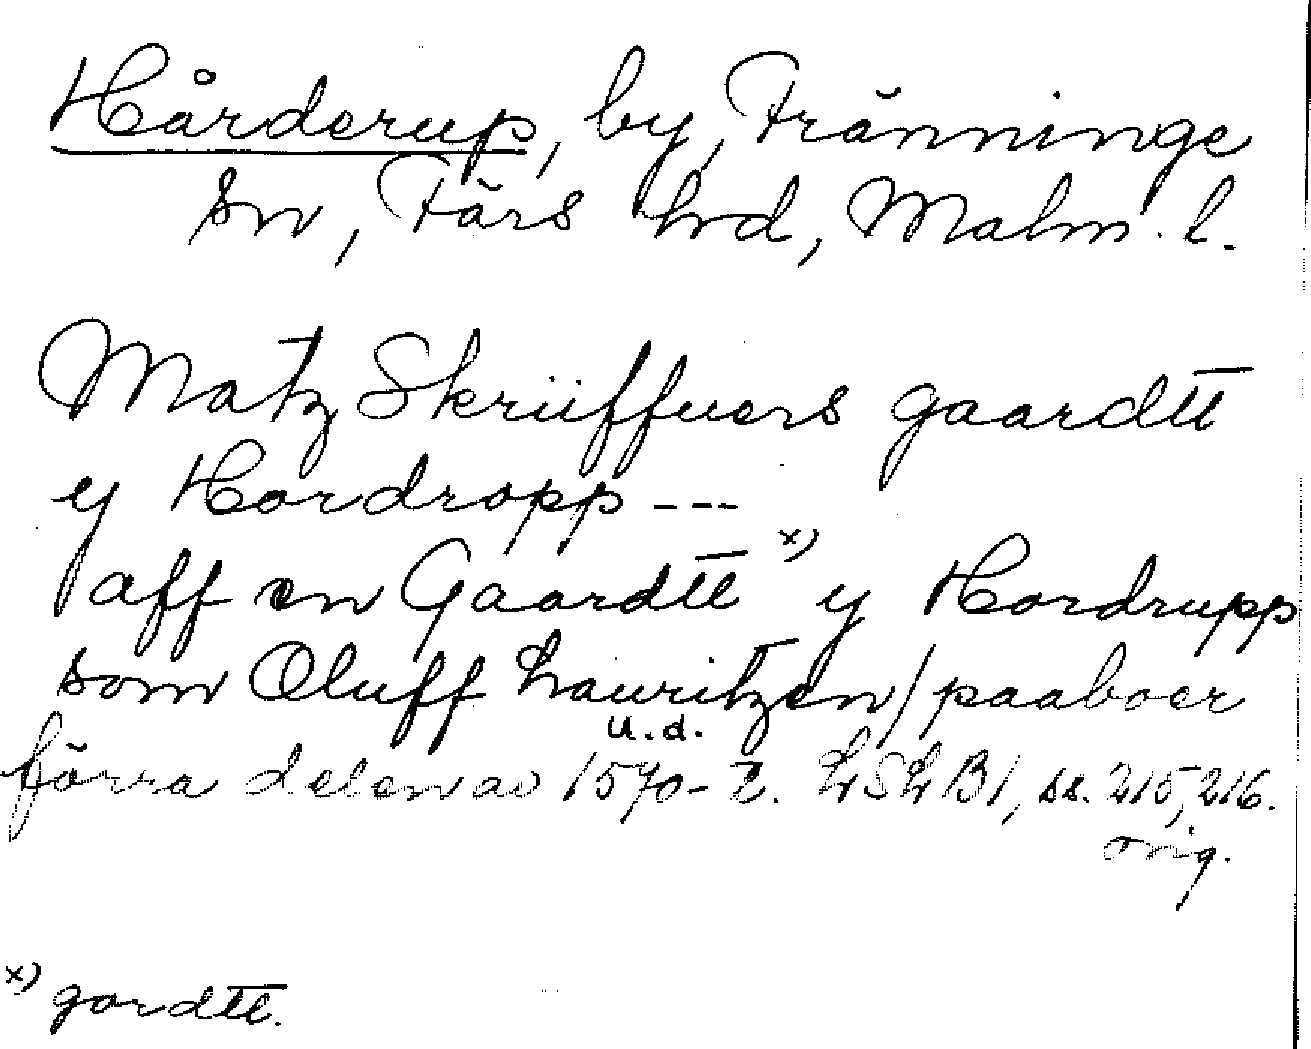 Hårderup, by, Fränninge
sn, Färs hd, Malm. l.
Matz Skriiffuers gaardtt
y Hordropp ---
aff en Gaardtt x) y Hordrupp
som Oluff Lauritzen / paaboer
u.d.
förra delen av 1570-t. LSLB1, ss. 215, 216.
orig.
x) gordtt.